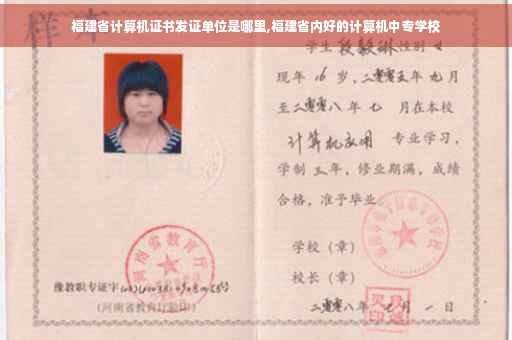 福建省计算机证书发证单位是哪里,福建省内好的计算机中专学校
样本
学生 段毅琳 性别 女
现年 16 岁，二零零五年 九月
至二零零八年 七 月在本校
计算机应用 专业学习，
学制 三年，修业期满，成绩
合格，准予毕业
学校（章）
校长（章）
二零零八年 七月 一日
河南省教育厅
豫教职专证字
（河南省教育厅验印）